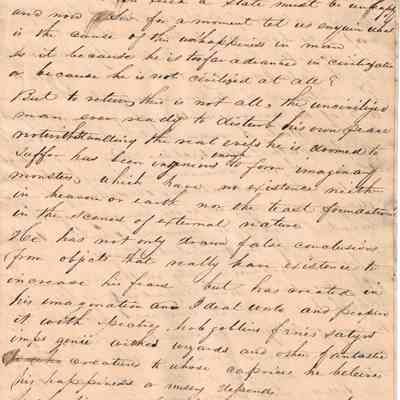 such a state must be unhappy
and now for a moment let us enquire what
is the cause of this unhappiness in man
is it because he is too far advanced in civilization
or because he is not civilised at all?
But to return this is not all, the uncivilized
man ever ready to disturb his own peace
notwithstanding the real evils he is doomed to
suffer has been ingenious enough to form imaginary
monsters, which have no existence neither
in heaven or earth nor the least foundation
in the scenes of external nature
He has not only drawn false conclusions
from objects that really have existence to
increase his fears but has created in
his imagination an Ideal world and peopled
it with hobgoblins satyrs
imps genii witches wizards and other fantastic
creatures to whose caprices he believes
his happiness or misery depends